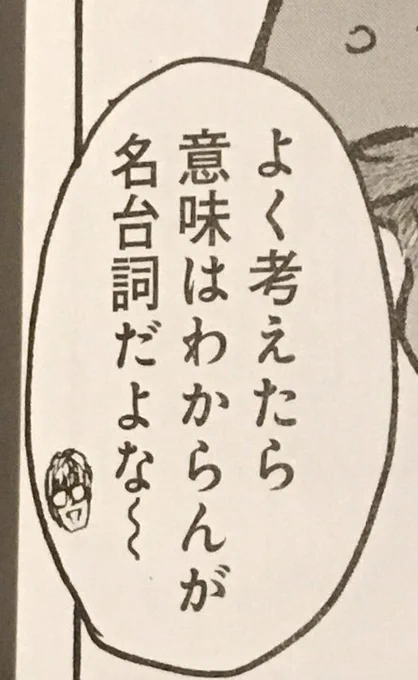 よく考えたら
意味はわからんが
名台詞だよな〜